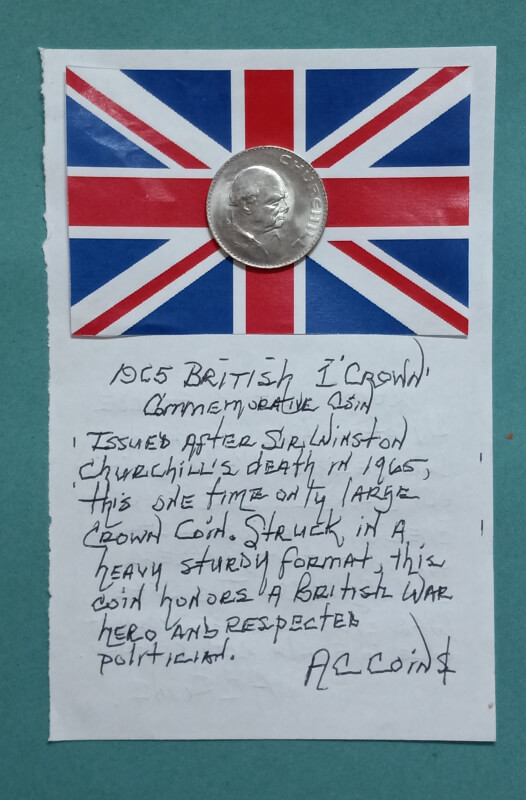 CHURCHILL
1965 BRITISH 1 'CROWN'
COMMEMORATIVE COIN
'ISSUED AFTER SIR WINSTON
CHURCHILL'S DEATH IN 1965,
THIS ONE TIME ONLY LARGE
CROWN COIN. STRUCK IN A
HEAVY STURDY FORMAT, THIS
COIN HONORS A BRITISH WAR
HERO AND RESPECTED
POLITICIAN.
AC COIN$